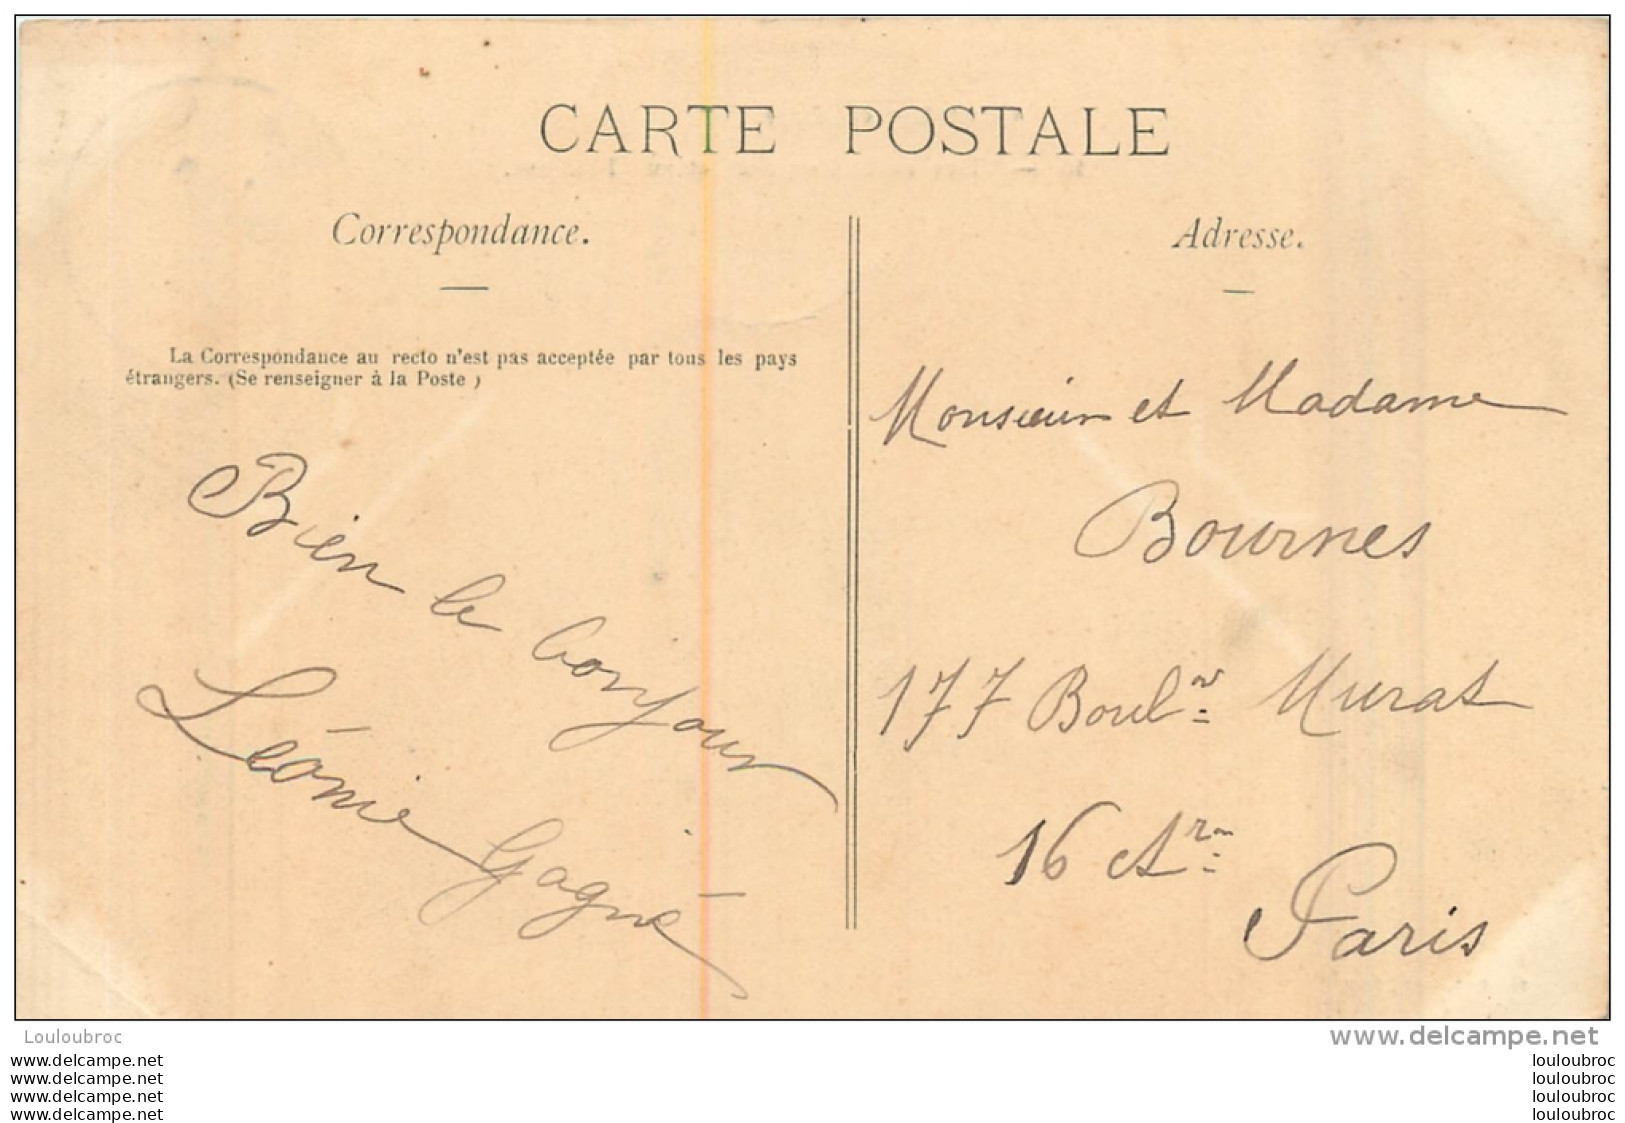 CARTE POSTALE
Correspondance.
La Correspondance au recto n'est pas acceptée par tous les pays
étrangers. (Se renseigner à la Poste)
Bien le bonjour
Léonie Gagné
Adresse.
Monsieur et Madame
Bournes
177 Boul^d Murat
16 Ar^
Paris
Louloubroc
www.delcampe.net
www.delcampe.net
www.delcampe.net
www.delcampe.net
www.delcampe.net
louloubroc
louloubroc
louloubroc
louloubroc